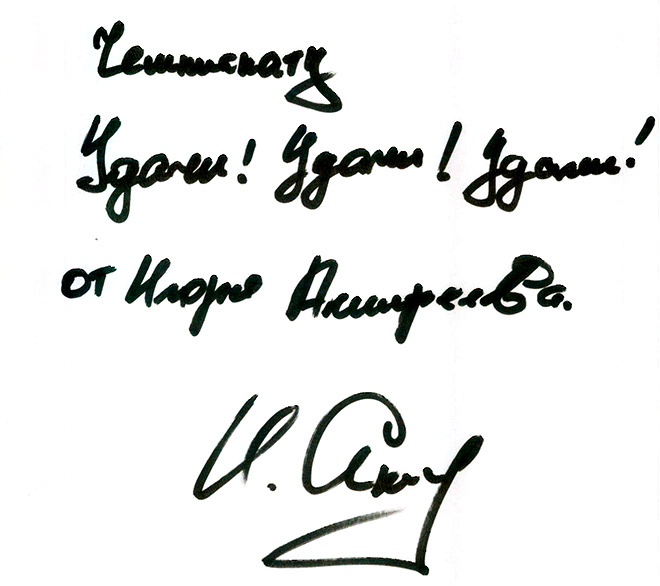 Чемпионату
Удачи! Удачи! Удачи!
от Игоря Акинфеева.
И. Акин